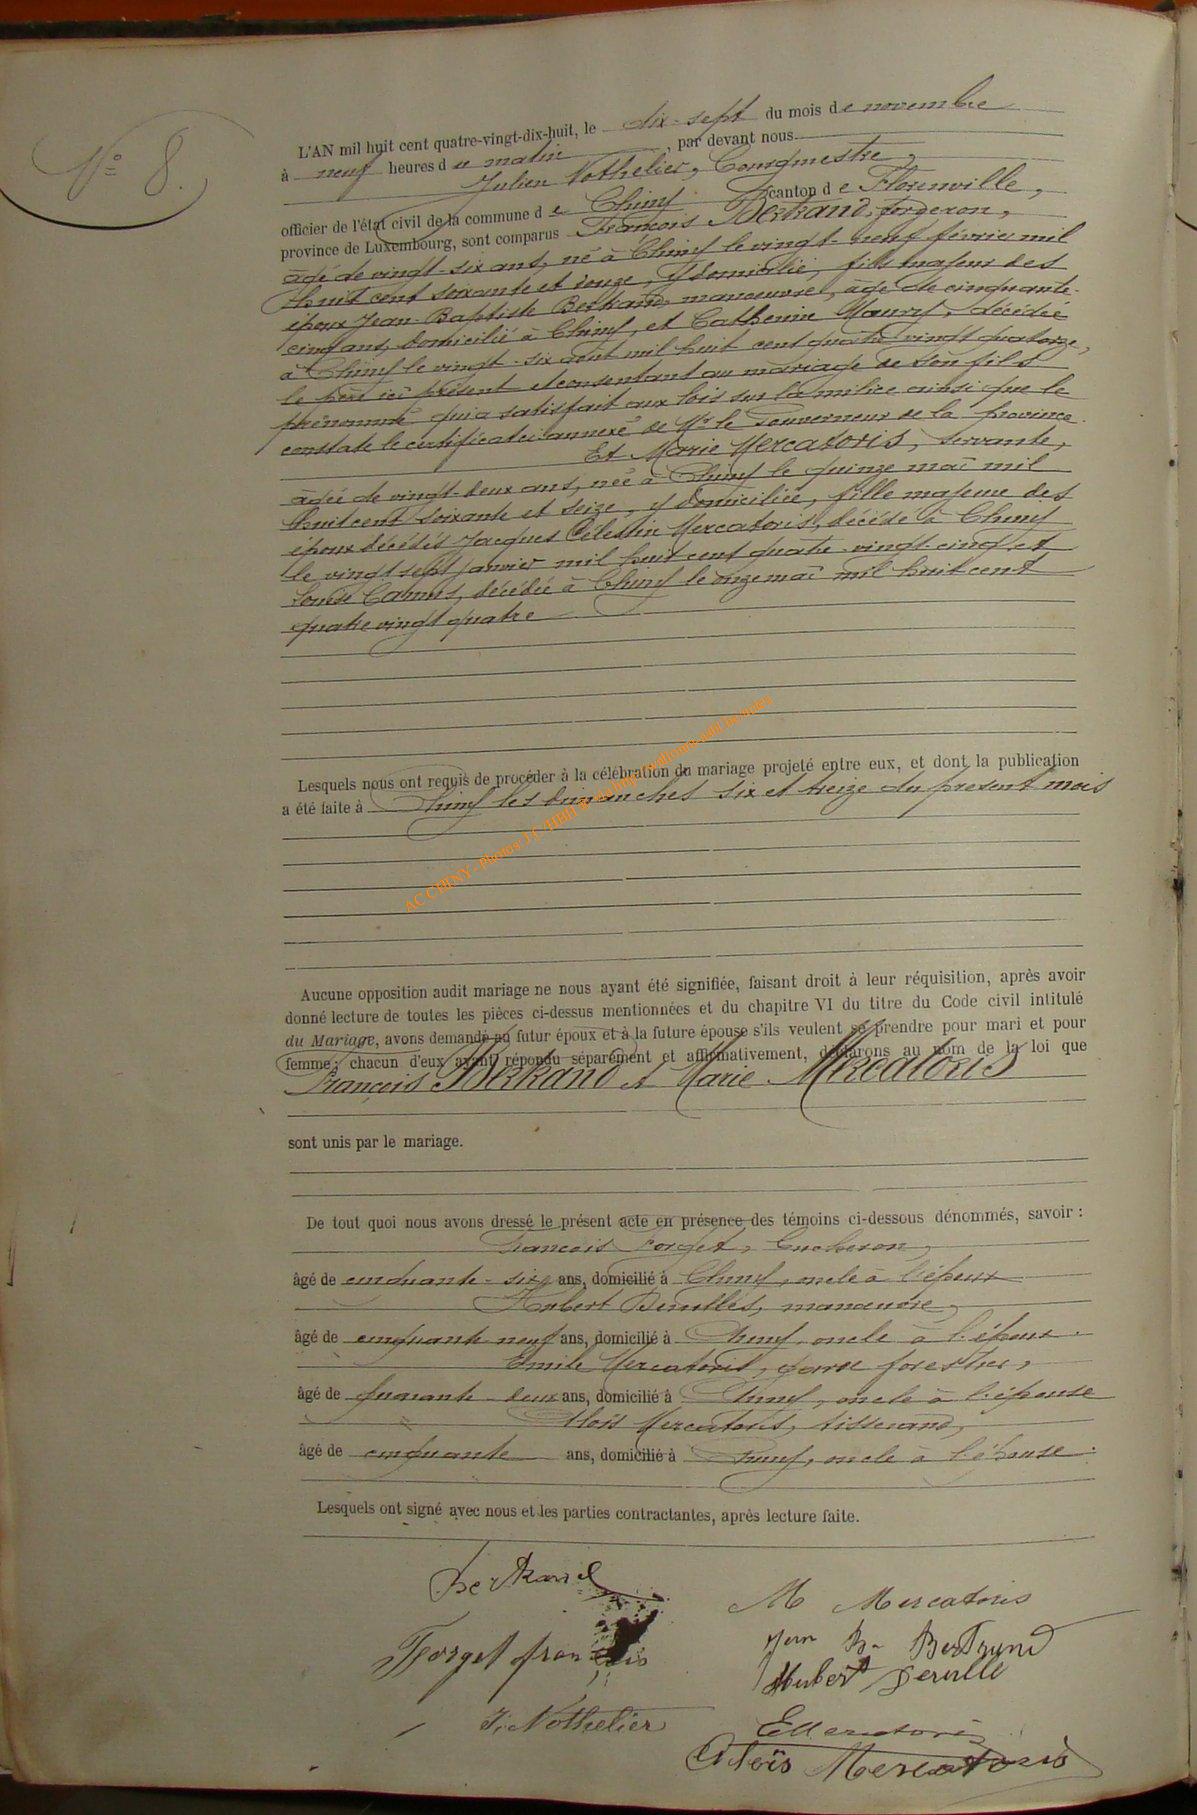 N° 8.
L'AN mil huit cent quatre-vingt-dix-huit, le dix-sept du mois de novembre
à neuf heures du matin, par devant nous
Julien Nothelier, Bourgmestre,
officier de l'état civil de la commune de Chiny canton de Florenville,
province de Luxembourg, sont comparus François Bertrand, forgeron,
âgé de vingt-six ans, né à Chiny le vingt-neuf février mil
huit cent soixante et douze, y domicilié, fils majeur des
époux Jean-Baptiste Bertrand, manoeuvre, âgé de cinquante-
cinq ans, domicilié à Chiny, et Catherine Maury, décédée
à Chiny le vingt-six août mil huit cent quatre vingt quatorze,
le père ici présent et consentant au mariage de son fils
prénommé qui a satisfait aux lois sur la milice ainsi que le
constate le certificat ci-annexé de Mr le Gouverneur de la province.
Et Marie Mercatoris, servante,
âgée de vingt-deux ans, née à Chiny le quinze mai mil
huit cent soixante et seize, y domiciliée, fille majeure des
époux décédés Jacques Célestin Mercatoris, décédé à Chiny
le vingt sept janvier mil huit cent quatre-vingt-cinq et
Louise Camus, décédée à Chiny le onze mai mil huit cent
quatre vingt quatre
Lesquels nous ont requis de procéder à la célébration du mariage projeté entre eux, et dont la publication
a été faite à Chiny les dimanches six et treize du présent mois
AC CHINY - Photos J.C.
Aucune opposition audit mariage ne nous ayant été signifiée, faisant droit à leur réquisition, après avoir
donné lecture de toutes les pièces ci-dessus mentionnées et du chapitre VI du titre du Code civil intitulé
du Mariage, avons demandé au futur époux et à la future épouse s'ils veulent se prendre pour mari et pour
femme; chacun d'eux ayant répondu séparément et affirmativement, déclarons au nom de la loi que
François Bertrand et Marie Mercatoris
sont unis par le mariage.
De tout quoi nous avons dressé le présent acte en présence des témoins ci-dessous dénommés, savoir :
François Forget, bucheron,
âgé de cinquante-six ans, domicilié à Chiny, oncle à l'époux
Hubert Derulles, manoeuvre,
âgé de cinquante neuf ans, domicilié à Chiny, oncle à l'époux.
Emile Mercatoris, garde forestier,
âgé de quarante-deux ans, domicilié à Chiny, oncle à l'épouse
Aloïs Mercatoris, tisserand,
âgé de cinquante ans, domicilié à Chiny, oncle à l'épouse.
Lesquels ont signé avec nous et les parties contractantes, après lecture faite.
Bertrand
M Mercatoris
Jean Bte Bertrand
Forget françois
Hubert Derulle
J. Nothelier
E Mercatoris
Aloïs Mercatoris